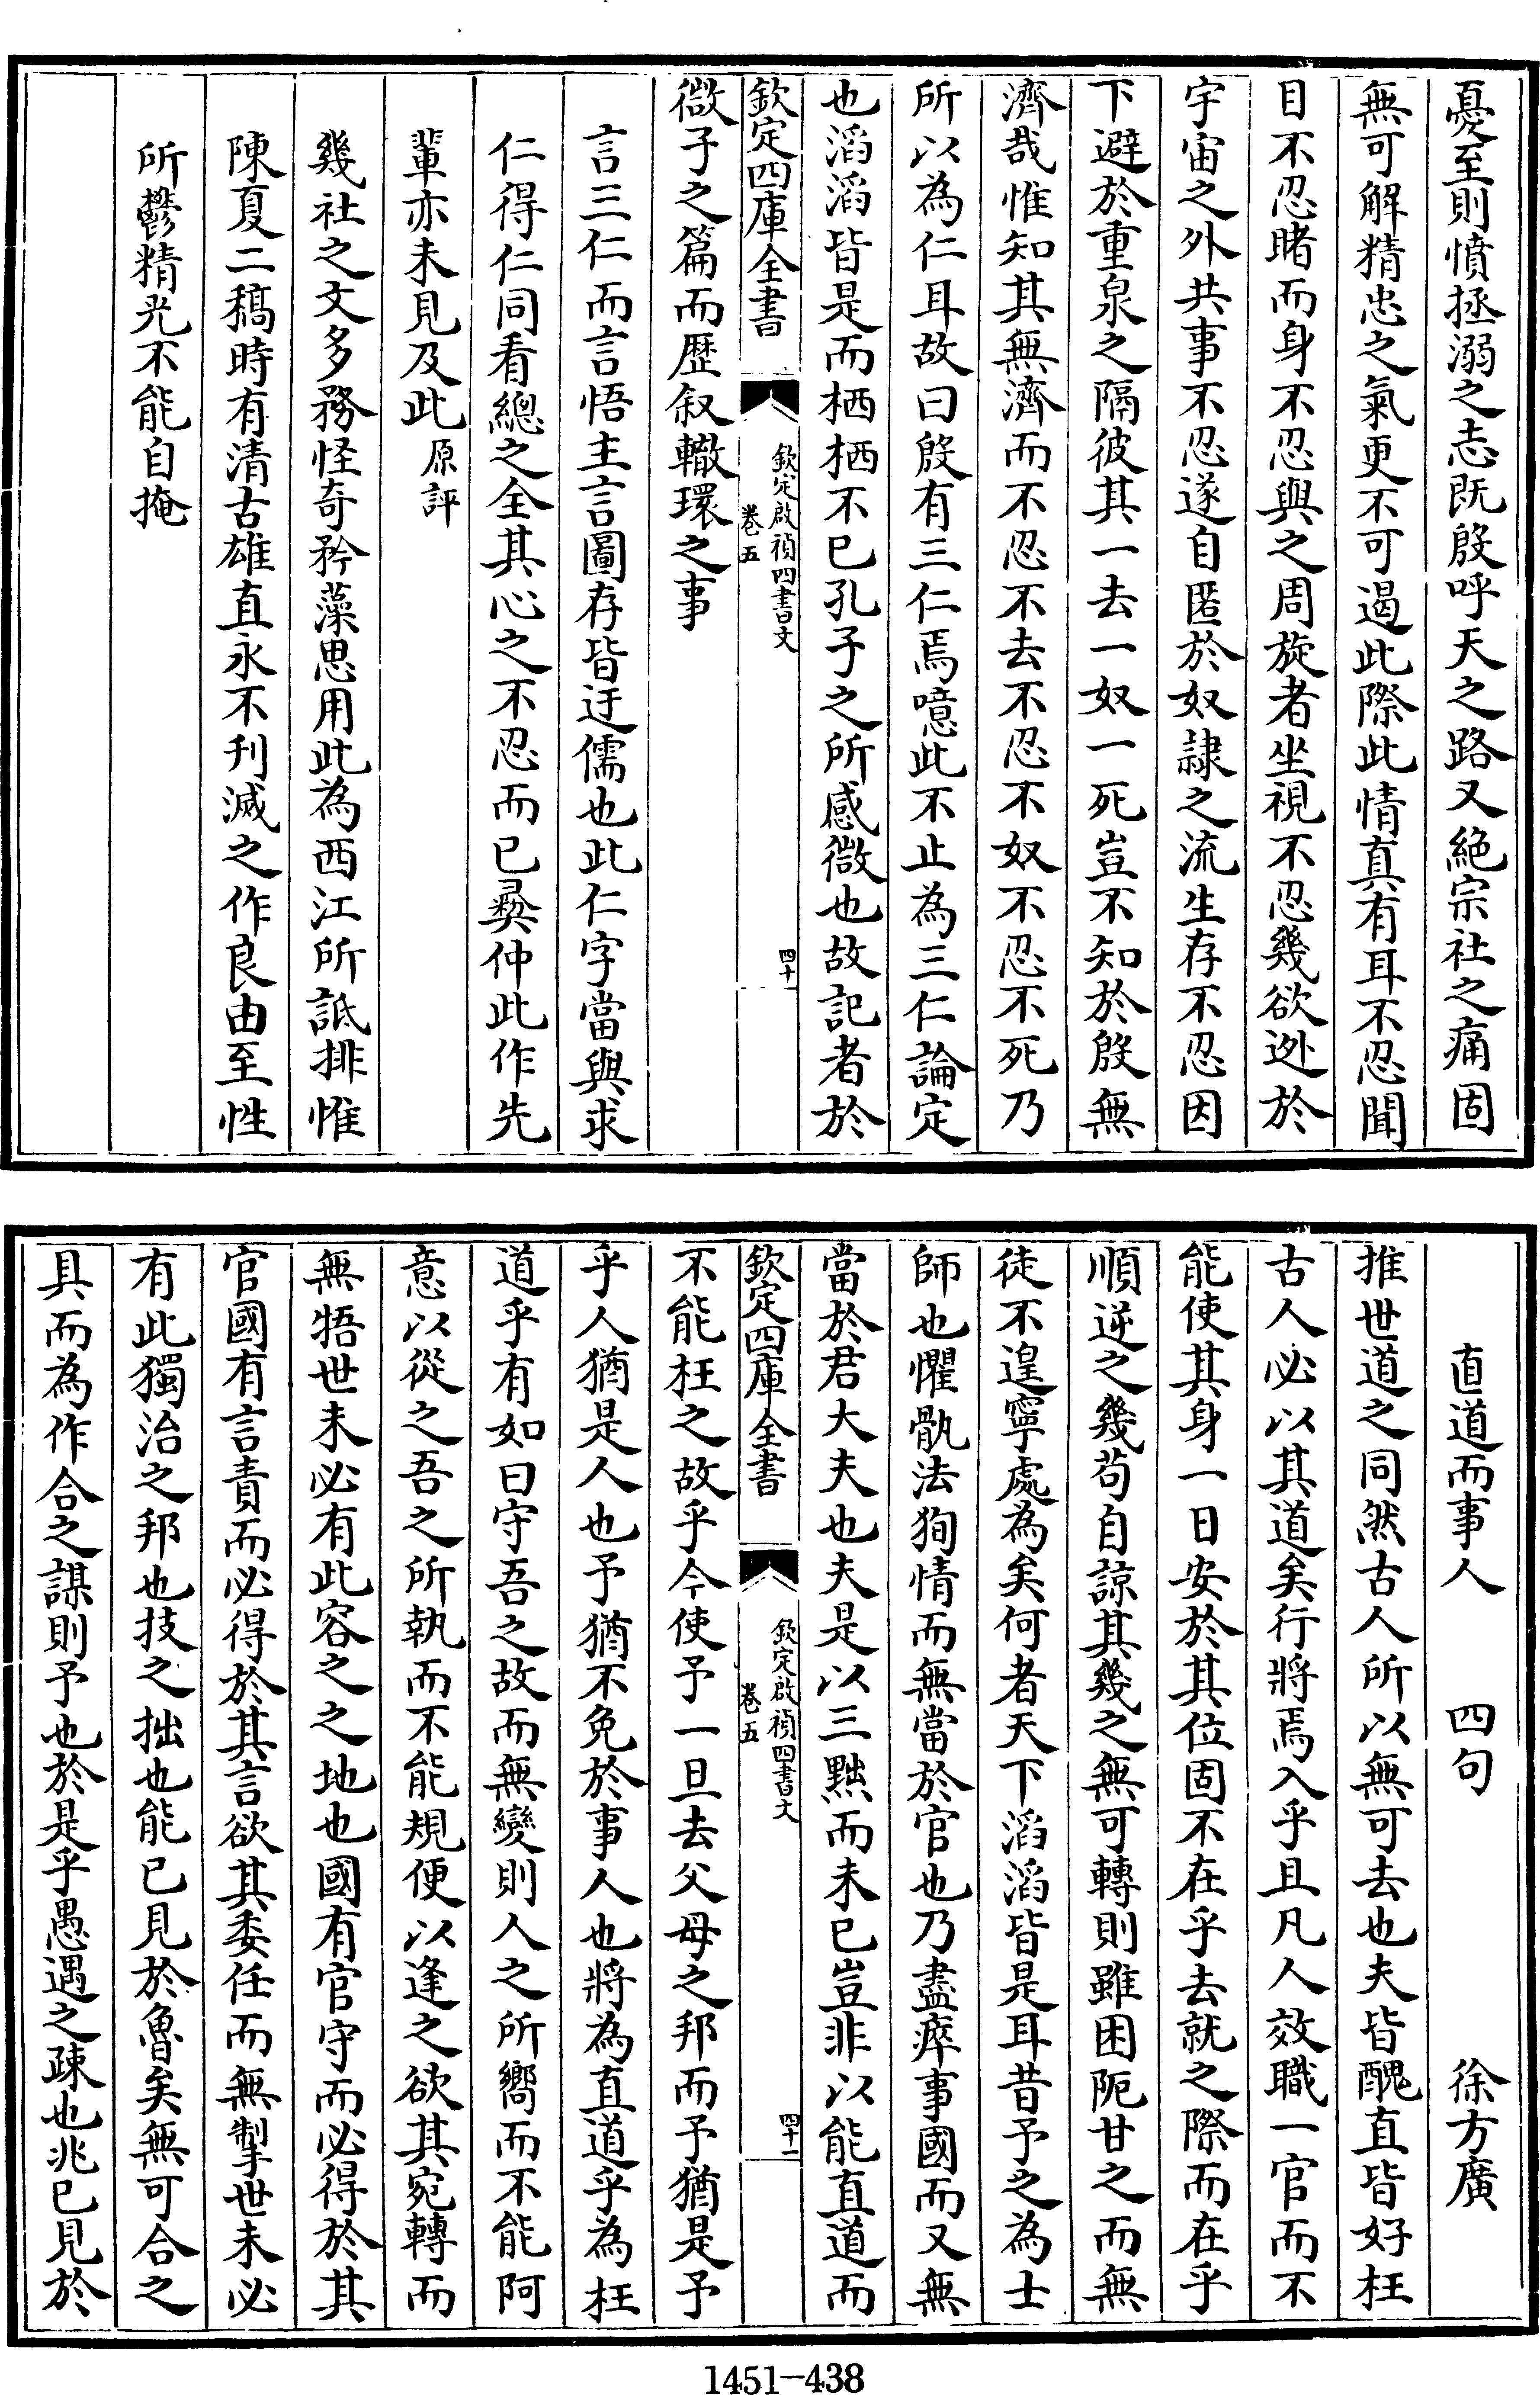 憂至則憤拯溺之志既殷呼天之路又絶宗社之痛固
無可解精忠之氣更不可遏此際此情真有耳不忍聞
目不忍睹而身不忍與之周旋者坐視不忍幾欲逊於
宇宙之外共事不忍遂自匿於奴隷之流生存不忍因
下避於重泉之隔彼其一去一奴一死豈不知於殷無
濟哉惟知其無濟而不忍不去不忍不奴不忍不死乃
所以為仁耳故曰殷有三仁焉噫此不止為三仁論定
也滔滔皆是而栖栖不已孔子之所感微也故記者於
欽定四庫全書
欽定啟禎四書文
卷五
四十
微子之篇而歴叙轍環之事
言三仁而言悟主言圖存皆迂儒也此仁字當與求
仁得仁同看總之全其心之不忍而已彛仲此作先
輩亦未見及此原評
幾社之文多務怪奇矜藻思用此為西江所詆排惟
陳夏二稿時有清古雄直永不刋滅之作良由至性
所鬱精光不能自掩
直道而事人 四句 徐方廣
推世道之同然古人所以無可去也夫皆醜直皆好枉
古人必以其道矣行將焉入乎且凡人效職一官而不
能使其身一日安於其位固不在乎去就之際而在乎
順逆之幾苟自諒其幾之無可轉則雖困阨甘之而無
徒不遑寧處為矣何者天下滔滔皆是耳昔予之為士
師也懼骩法狥情而無當於官也乃盡瘁事國而又無
當於君大夫也夫是以三黜而未已豈非以能直道而
欽定四庫全書
欽定啟禎四書文
卷五
四十一
不能枉之故乎今使予一旦去父母之邦而予猶是予
乎人猶是人也予猶不免於事人也將為直道乎為枉
道乎有如曰守吾之故而無變則人之所嚮而不能阿
意以從之吾之所執而不能規便以逢之欲其宛轉而
無牾世未必有此容之之地也國有官守而必得於其
官國有言責而必得於其言欲其委任而無掣世未必
有此獨治之邦也技之拙也能已見於魯矣無可合之
具而為作合之謀則予也於是乎愚遇之疎也兆已見於
1451-438